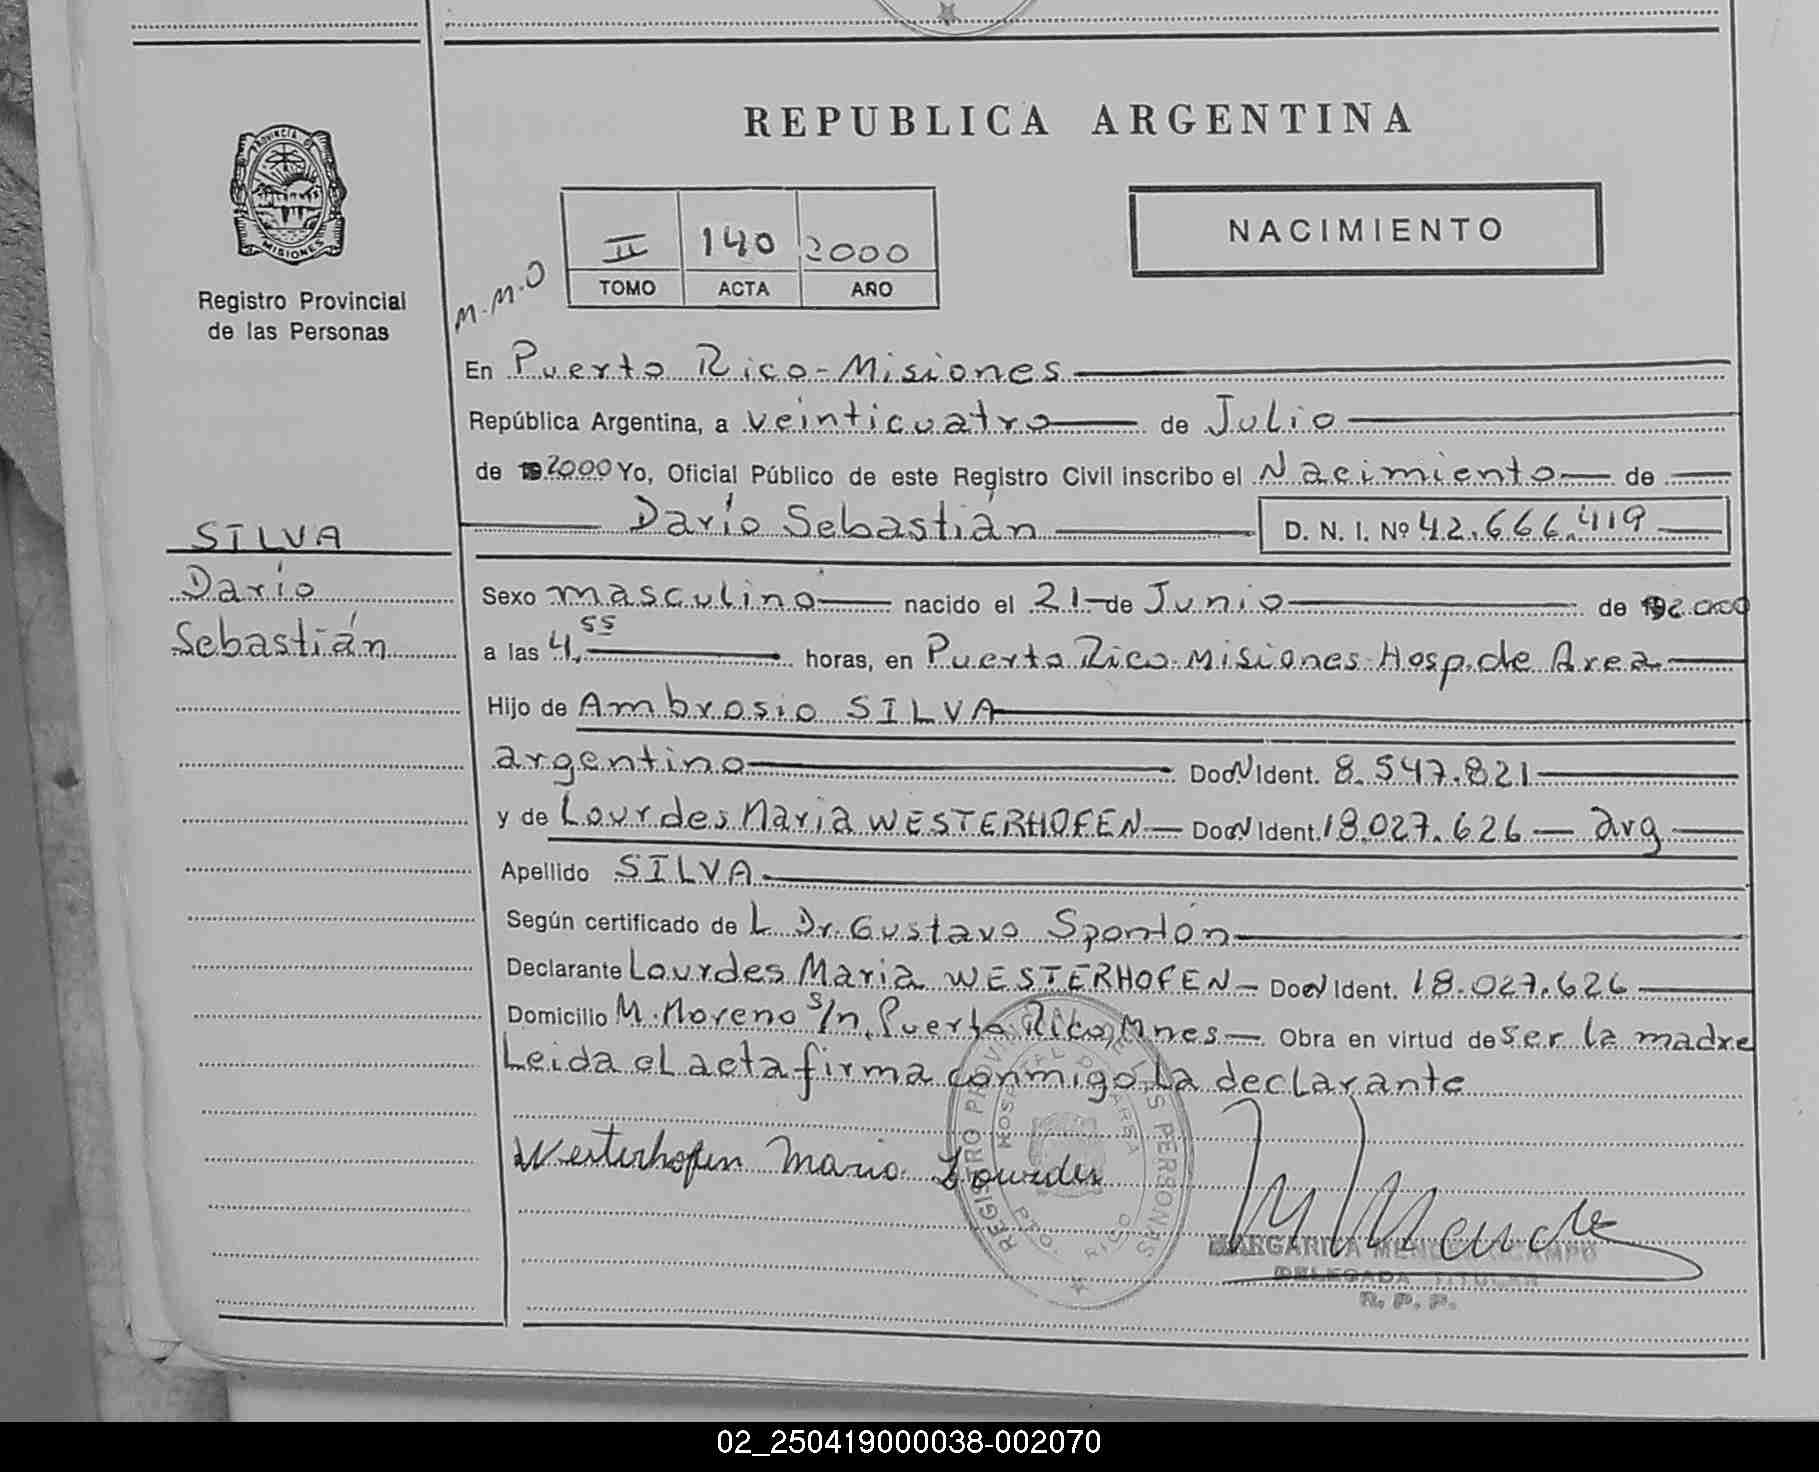 REPUBLICA ARGENTINA
PROVINCIA DE
MISIONES
Registro Provincial
de las Personas
NACIMIENTO
II 140 2000
TOMO ACTA AÑO
M.M.O
En Puerto Rico - Misiones
República Argentina, a veinticuatro de Julio
de 19 2000 Yo, Oficial Público de este Registro Civil inscribo el Nacimiento de
Darío Sebastián D. N. I. Nº 42.666.419
SILVA
Darío
Sebastián
Sexo masculino nacido el 21 de Junio de 19 2.000
a las 4,55 horas, en Puerto Rico Misiones Hosp. de Area
Hijo de Ambrosio SILVA
argentino Doc. N Ident. 8.547.821
y de Lourdes Maria WESTERHOFEN Doc. N Ident. 18.027.626 arg
Apellido SILVA
Según certificado de L Dr. Gustavo Spontón
Declarante Lourdes Maria WESTERHOFEN Doc. N Ident. 18.027.626
Domicilio M. Moreno s/n, Puerto Rico, Mnes Obra en virtud de ser la madre
Leida el acta firma conmigo la declarante
Westerhofen Maria Lourdes
REGISTRO PROV. DE LAS PERSONAS
HOSPITAL DE AREA
PTO. RICO
MARGARITA
DELEGADA TITULAR
R. P. P.
02_250419000038-002070